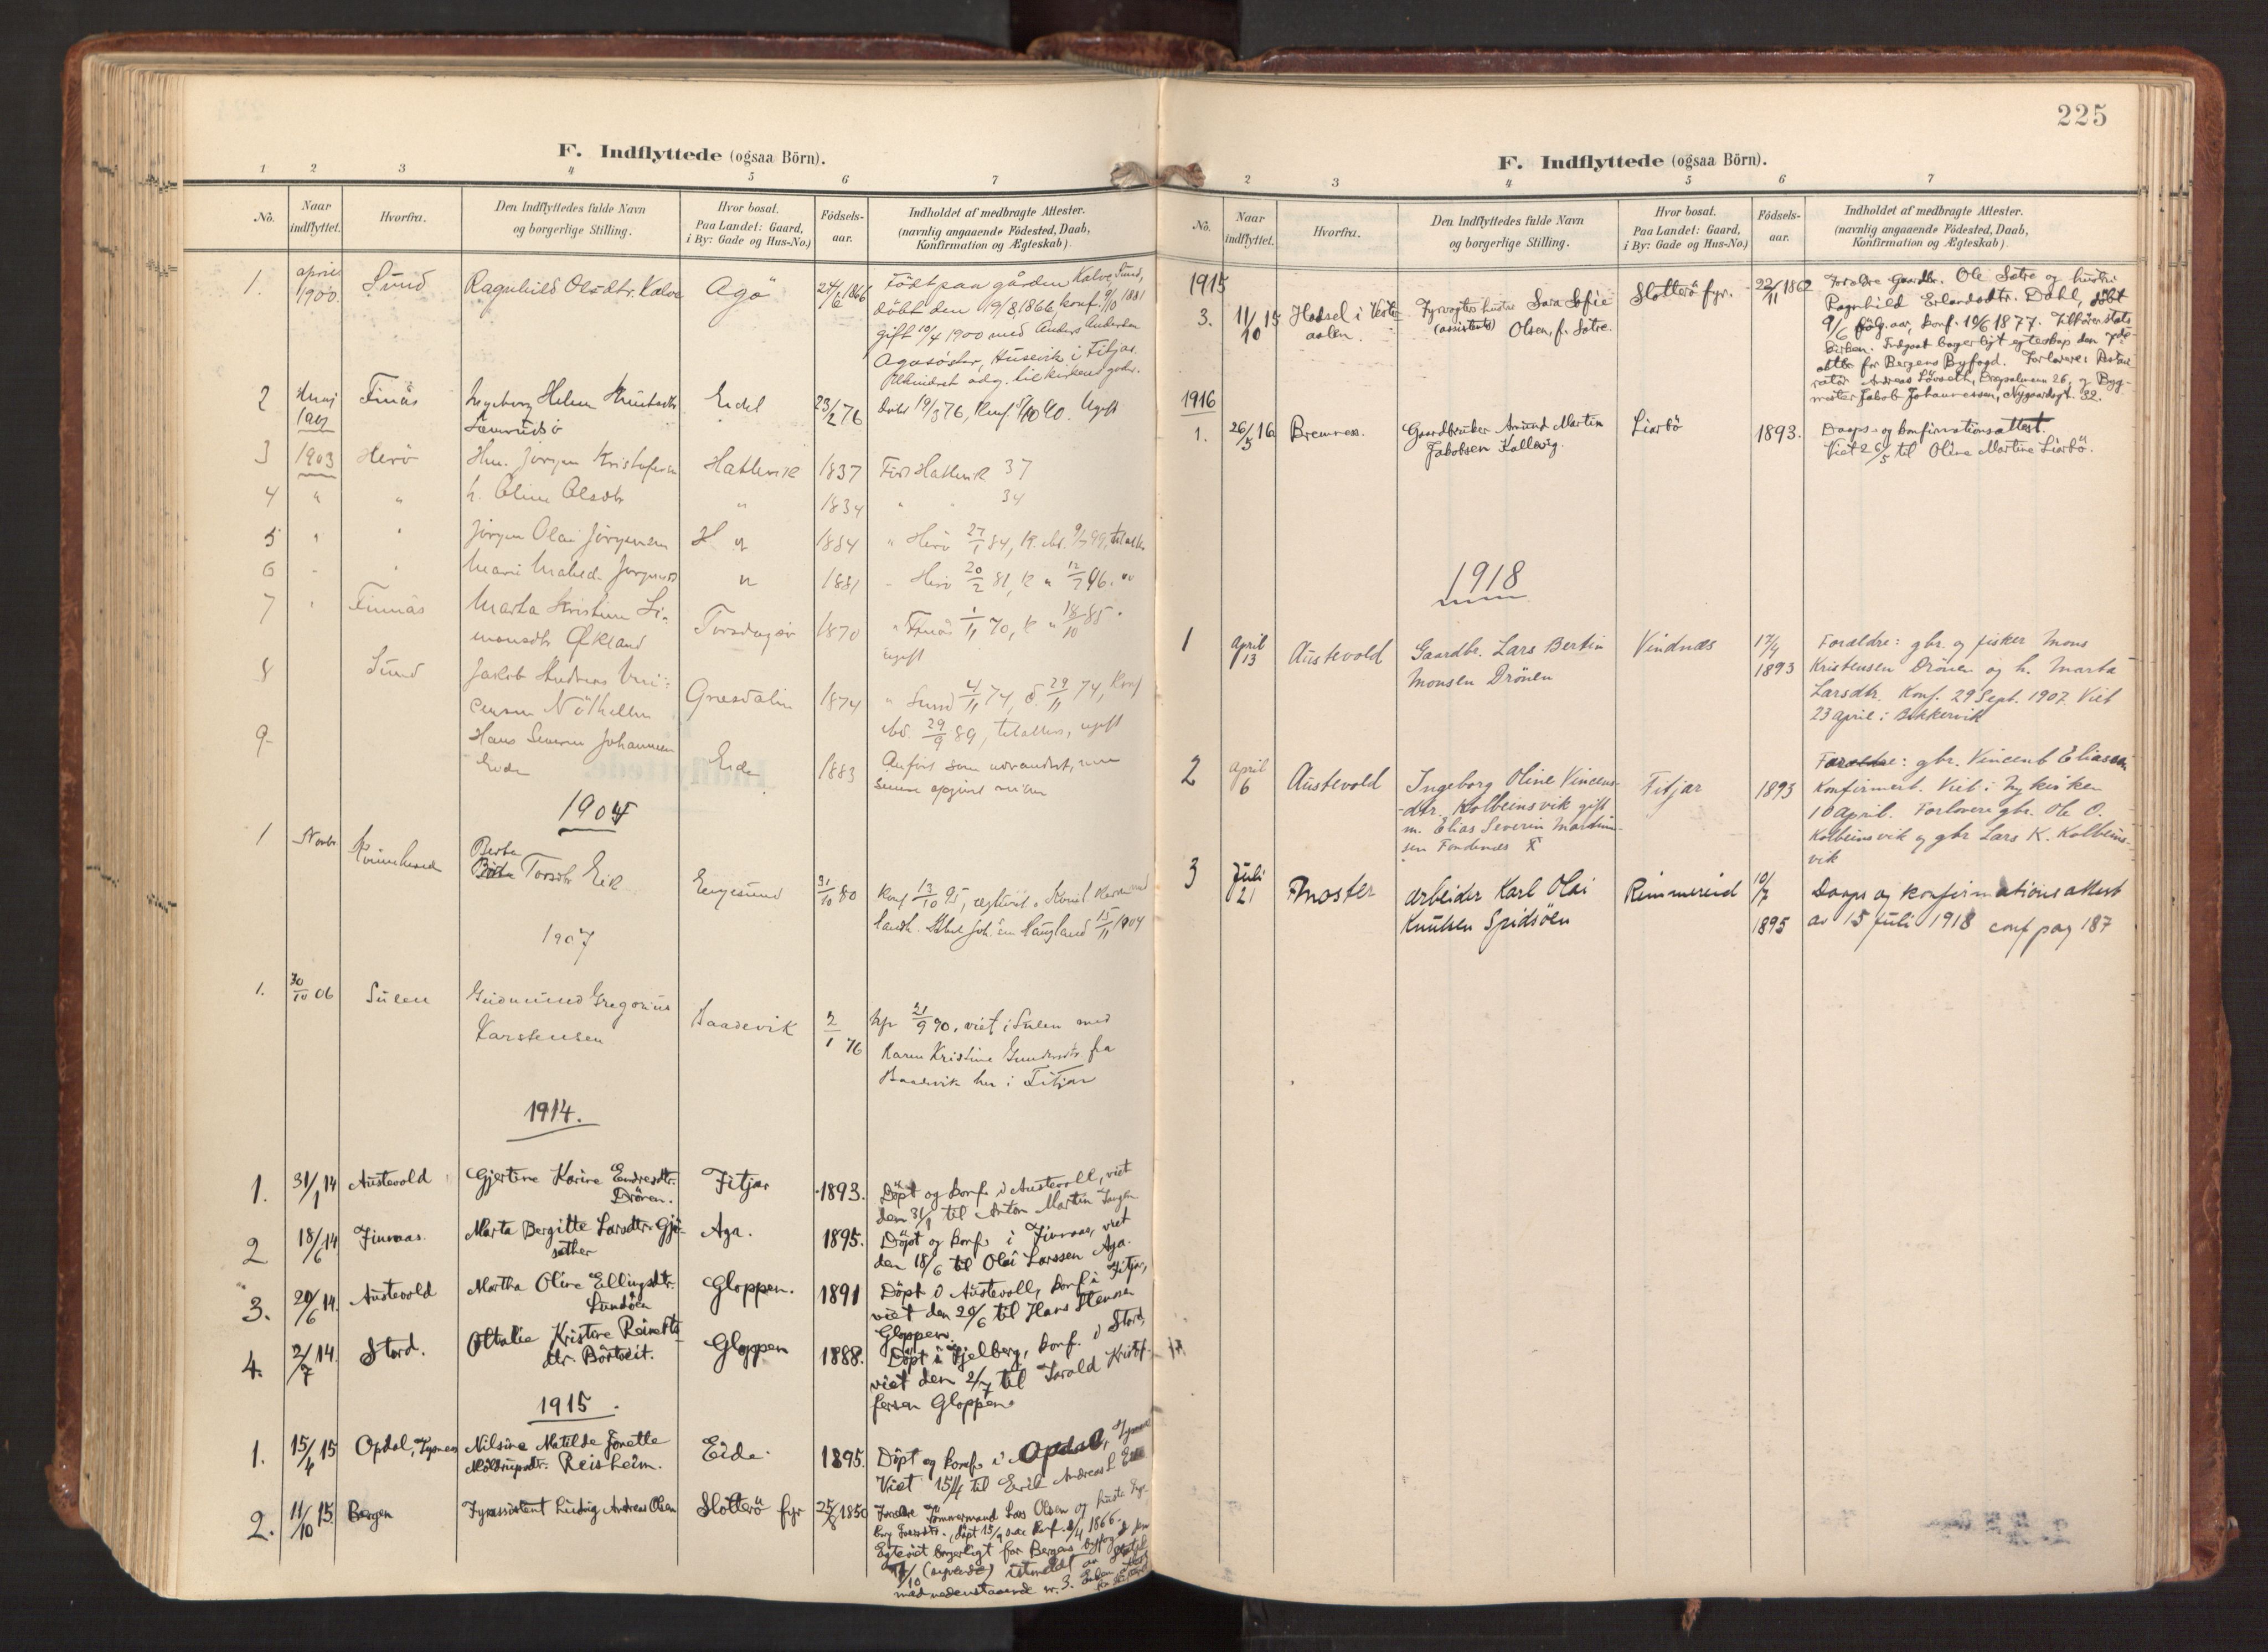 F. Indflyttede (ogsaa Börn).
1 2 3 4 5 6 7
No.
Naar indflyttet.
Hvorfra.
Den Indflyttedes fulde Navn og borgerlige Stilling.
Hvor bosat. Paa Landet: Gaard, i By: Gade og Hus-No.)
Födsels-aar.
Indholdet af medbragte Attester. (navnlig angaaende Födested, Daab, Konfirmation og Ægteskab).
1. april 1900. Sund Ragnhild Olsdtr. Kalve Agö 24/6 1866 Födt paa gården Kalve, Sund,
döbt den 19/8 1866, konf. 9/10 1881
gift 10/4 1900 med Anders Andersen
Agasöstr, Husevik i Fitjar.
2 Finås Ingeborg Helene Eidet 23/2 76 Döbt 19/3 76, Konf. 5/10 90. Ugift
3 1903 Herö Hm. Jörgen Kristofersen Hatlevik 1837 Föd Hatlevik 37
4 " " h. Oline Olsdtr " 1834 " " 34
5 " " Jörgen Olai Jörgensen H " 1884 " Herö 27/1 84,
6 " " Marie Mathild. Jörgensd " 1881 " Herö 20/2 81, k " 12/7 96.
7 " Finnås Marta Kristine Si-
monsdtr Økland Torsdagsö 1870 " Finås 1/11 70, k " 18/10 85.
ugift
8 Sund Jakob Andreas Vin-
censen Nöthellen Græsdalen 1874 " Sund 4/11 74, d. 29/11 74, Konf
29/9 89, ugift
9 Hans Severin Johannesen
Eide Eide 1883 Anfört som udvandret,
1904
1 Novbr Kvinnherad Berta
Torsdtr Eik Engesund 31/10 80 Konf 13/10 95,
Haugland 15/11 1904
1907
1. 30/10 06 Sulen Gudmund Gregorius
Karstensen Baadevik 2/1 76 kfr 21/9 90. viet i Sulen med
Karen Kristine Gundersdtr fra
Baadevik her i Fitjar
1914.
1. 31/1 14 Austevold Gjertine Karine Endresdtr.
Drönen. Fitjar 1893. Döpt og konf. i Austevoll, viet
den 31/1 til Anton Martin
2 18/6 14 Finnaas. Marta Bergitte Larsdtr. Gjö-
sæther Aga. 1895. Döpt og konf. i Finnaas, viet
den 18/6 til Olai Larssen Aga.
3. 20/6 14. Austevold Martha Oline Ellingsdtr.
Lundöen Gloppen. 1891 Döpt i Austevoll, konf. i Fitjar,
viet den 20/6 til Hans Stensen
Gloppen.
4. 2/7 14. Stord. Othalie Kristine Reinerts-
dtr. Börtveit. Gloppen 1888. Döpt i Fjelberg, konf. i Stord,
viet den 2/7 til Harald Kristof-
fersen Gloppen.
1915.
1. 15/4 15 Opdal, Tysnes Nilsine Matilde Jonette
Möldrupsdtr. Reisheim. Eide. 1895. Döpt og konf. i Opdal, Tysnes
Viet 15/4 til Erik Andreas L. Eide
2. 11/10 15. Bergen Fyrassistent Ludvig Andreas Olsen Slotterö fyr 25/8 1850 Foreldre Tömmermand Lars Olsen og hustr
döpt 15/9 s. aar konf. 8/4 1866.
Egteviet borgerligt for Bergens byfogd den
(syvende) utmeldt av statsk
med nedenstaaende nr. 3.
225
F. Indflyttede (ogsaa Börn).
2 3 4 5 6 7
No.
Naar indflyttet.
Hvorfra.
Den Indflyttedes fulde Navn og borgerlige Stilling.
Hvor bosat. Paa Landet: Gaard, i By: Gade og Hus-No.)
Födsels-aar.
Indholdet af medbragte Attester. (navnlig angaaende Födested, Daab, Konfirmation og Ægteskab).
1915
3. 11/10 15 Hadsel i Veste-
aalen. Fyrvogters hustru Sara Sofie
(assistents) Olsen, f. Sætre. Slotterö fyr. 22/11 1862 Foreldre Gaardbr. Ole Sætre og hustru
Ragnhild Erlandsdtr. Dahl, döbt
9/6 fölg. aar, konf. 10/6 1877. Tilhörer stats
kirken. Indgaat borgerligt egteskap den 7de
oktbr for Bergens Byfogd. Forlovere: Restau-
ratör Andreas Lövseth, 26, og Byg-
mester Jakob Johannessen, Nygaardsgt. 32.
1916
1. 26/5 16 Bremnes. Gaardbruker Amund Martin
Jakobsen Kallevig. Liarbö 1893. Daaps- og konfirmationsattest.
Viet 26/5 til Oline Martine Liarbö.
1918
1 April 13 Austevold Gaardbr. Lars Bertin
Monsen Drönen Vindnæs 17/4 1893 Forældre: gbr. og fisker Mons
Kristensen Drönen og h. Marta
Larsdtr. Konf. 29 Sept. 1907. Viet
23 april i Bekkervik
2 April 6 Austevold Ingeborg Oline Vincens-
-dtr. Kolbeinsvik gift
m. Elias Severin Martin-
sen Fondenæs Fitjar 1893 Forældre: gbr. Vincent Eliassen
Konfirmert. Viet i Nykirken
10 april. Forlovere gbr. Ole O.
Kolbeinsvik og gbr Lars K. Kolbeins-
vik
3 Juli 21 Moster arbeider Karl Olai
Knutsen Spidsöen Rimmereid 10/7 1895 Daaps og konfirmationsattest
av 15 juli 1918 conf pag 187